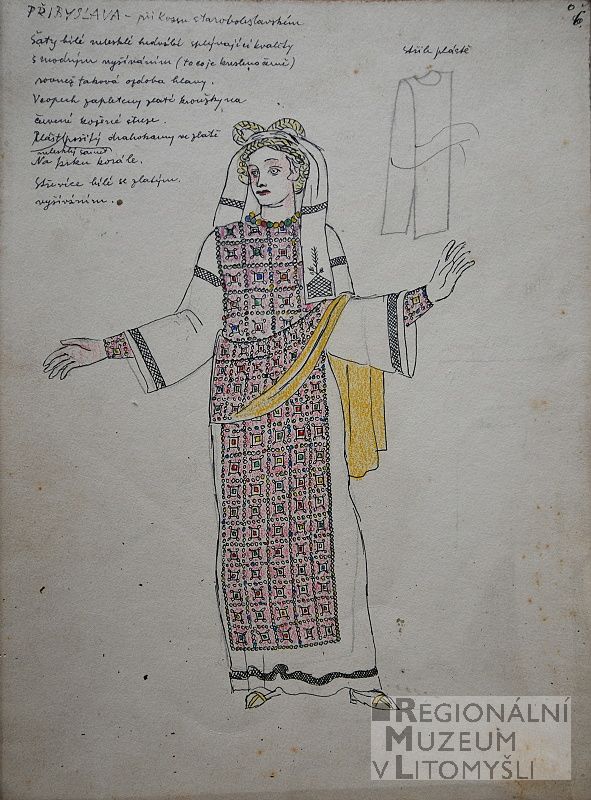 PŘIBYSLAVA - při kvasu staroboleslavském
6.
Šaty bílé nelesklé hedvábí splývající kvality
s modrým vyšíváním (to co je kresleno černě)
rovněž taková ozdoba hlavy.
V copech zapleteny zlaté kroužky na
červené kožené stuze.
Plášť pošitý drahokamy ve zlatě
Na krku korále.
Střevíce bílé se zlatým
vyšíváním.
Střih pláště
REGIONÁLNÍ
MUZEUM
V LITOMYŠLI